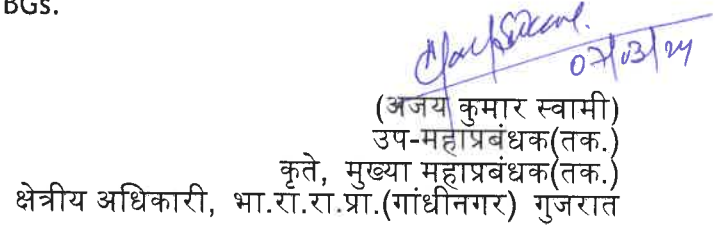 BGs.
07/03/24
(अजय कुमार स्वामी)
उप-महाप्रबंधक(तक.)
कृते, मुख्या महाप्रबंधक(तक.)
क्षेत्रीय अधिकारी, भा.रा.रा.प्रा.(गांधीनगर) गुजरात